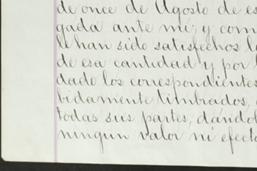 de once de Agosto de es
gada ante mí; y com
le han sido satisfechos lo
de esa cantidad y por l
dado los correspondientes
bidamente timbrados,
todas sus partes, dándol
ningun valor ni efecto